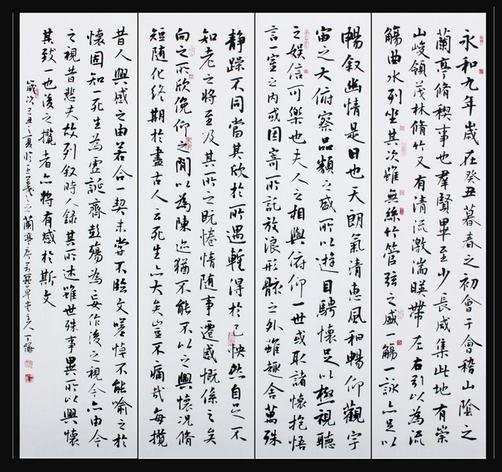 永和九年歲在癸丑暮春之初會于會稽山陰之
蘭亭脩禊事也群賢畢至少長咸集此地有崇
山峻領茂林脩竹又有清流激湍暎帶左右引以為流
觴曲水列坐其次雖無絲竹管弦之盛一觴一詠亦足以
暢叙幽情是日也天朗氣清惠風和暢仰觀宇
宙之大俯察品類之盛所以遊目騁懷足以極視聽
之娛信可樂也夫人之相與俯仰一世或取諸懷抱悟
言一室之內或因寄所託放浪形骸之外雖趣舍萬殊
靜躁不同當其欣於所遇輙得於己怏然自足不
知老之將至及其所之既惓情隨事遷感慨係之矣
向之所欣俛仰之間以為陳迹猶不能不以之興懷況脩
短隨化終期於盡古人云死生亦大矣豈不痛哉每攬
昔人興感之由若合一契未嘗不臨文嗟悼不能喻之於
懷固知一死生為虛誕齊彭殤為妄作後之視今亦由今
之視昔悲夫故列叙時人錄其所述雖世殊事異所以興懷
其致一也後之攬者亦將有感於斯文
歲次之夏王羲之蘭亭序